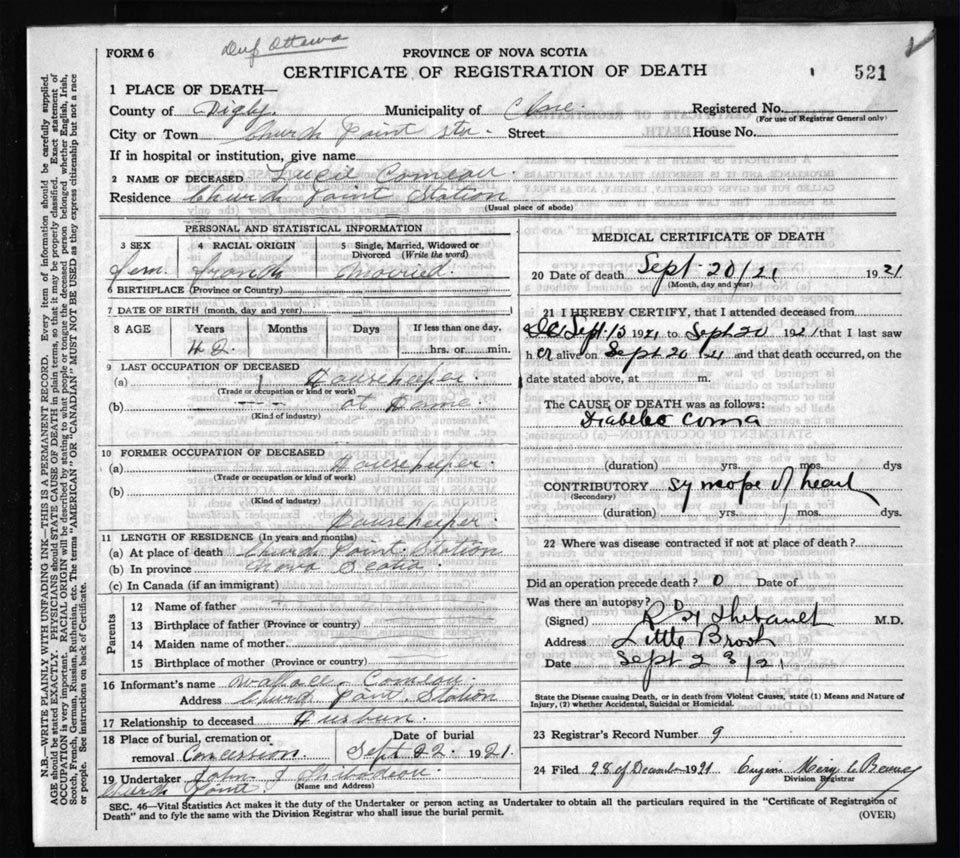 Dup Ottawa
FORM 6
PROVINCE OF NOVA SCOTIA
CERTIFICATE OF REGISTRATION OF DEATH
521
1 PLACE OF DEATH—
County of Digby. Municipality of Clare. Registered No.
(For use of Registrar General only)
City or Town Church Point Stn. Street House No.
If in hospital or institution, give name
2 NAME OF DECEASED Comeau
Residence Church Point Station
(Usual place of abode)
PERSONAL AND STATISTICAL INFORMATION
3 SEX 4 RACIAL ORIGIN 5 Single, Married, Widowed or Divorced (Write the word)
Fem. French Married.
6 BIRTHPLACE (Province or Country)
7 DATE OF BIRTH (month, day and year)
8 AGE Years Months Days If less than one day,
42. hrs. or min.
9 LAST OCCUPATION OF DECEASED
(a) Housekeeper.
(Trade or occupation or kind or work)
(b) at Home
(Kind of industry)
10 FORMER OCCUPATION OF DECEASED
(a) Housekeeper.
(Trade or occupation or kind of work)
(b)
(Kind of industry)
Housekeeper
11 LENGTH OF RESIDENCE (In years and months)
(a) At place of death Church Point Station
(b) In province Nova Scotia
(c) In Canada (if an immigrant)
Parents
12 Name of father
13 Birthplace of father (Province or country)
14 Maiden name of mother
15 Birthplace of mother (Province or country)
16 Informant's name Comeau
Address Church Point Station
17 Relationship to deceased Husbun.
18 Place of burial, cremation or removal Date of burial
Concession Sept 22. 1921.
19 Undertaker John Thibodeau
(Name and Address)
Church Point
MEDICAL CERTIFICATE OF DEATH
20 Date of death Sept 20/21 1921
(Month, day and year)
21 I HEREBY CERTIFY, that I attended deceased from
Sept. 1921 to Sept 20 1921 that I last saw
her alive on Sept 20 1921 and that death occurred, on the
date stated above, at m.
The CAUSE OF DEATH was as follows:
Diabetic Coma
(duration) yrs. mos. dys
CONTRIBUTORY Syncope of heart
(Secondary)
(duration) yrs. mos. dys.
22 Where was disease contracted if not at place of death?
Did an operation precede death? 0 Date of
Was there an autopsy?
(Signed) Thibault M.D.
Address Little Brook
Date Sept 23/21
State the Disease causing Death, or in death from Violent Causes, state (1) Means and Nature of
Injury, (2) whether Accidental, Suicidal or Homicidal.
23 Registrar's Record Number 9
24 Filed 28 of December 1921
Division Registrar
SEC. 46—Vital Statistics Act makes it the duty of the Undertaker or person acting as Undertaker to obtain all the particulars required in the "Certificate of Registration of
Death" and to fyle the same with the Division Registrar who shall issue the burial permit.
(OVER)
N.B.—WRITE PLAINLY WITH UNFADING INK—THIS IS A PERMANENT RECORD. Every item of information should be carefully supplied.
AGE should be stated EXACTLY. PHYSICIANS should STATE CAUSE OF DEATH in plain terms, so that it may be properly classified. Exact statement of
OCCUPATION is very important. RACIAL ORIGIN will be described by stating to what people or tongue the deceased person belonged whether English, Irish,
Scotch, French, German, Russian, Ruthenian, etc. The terms "AMERICAN" or "CANADIAN" MUST NOT BE USED as they express citizenship but not a race
or people. See instructions on back of Certificate.